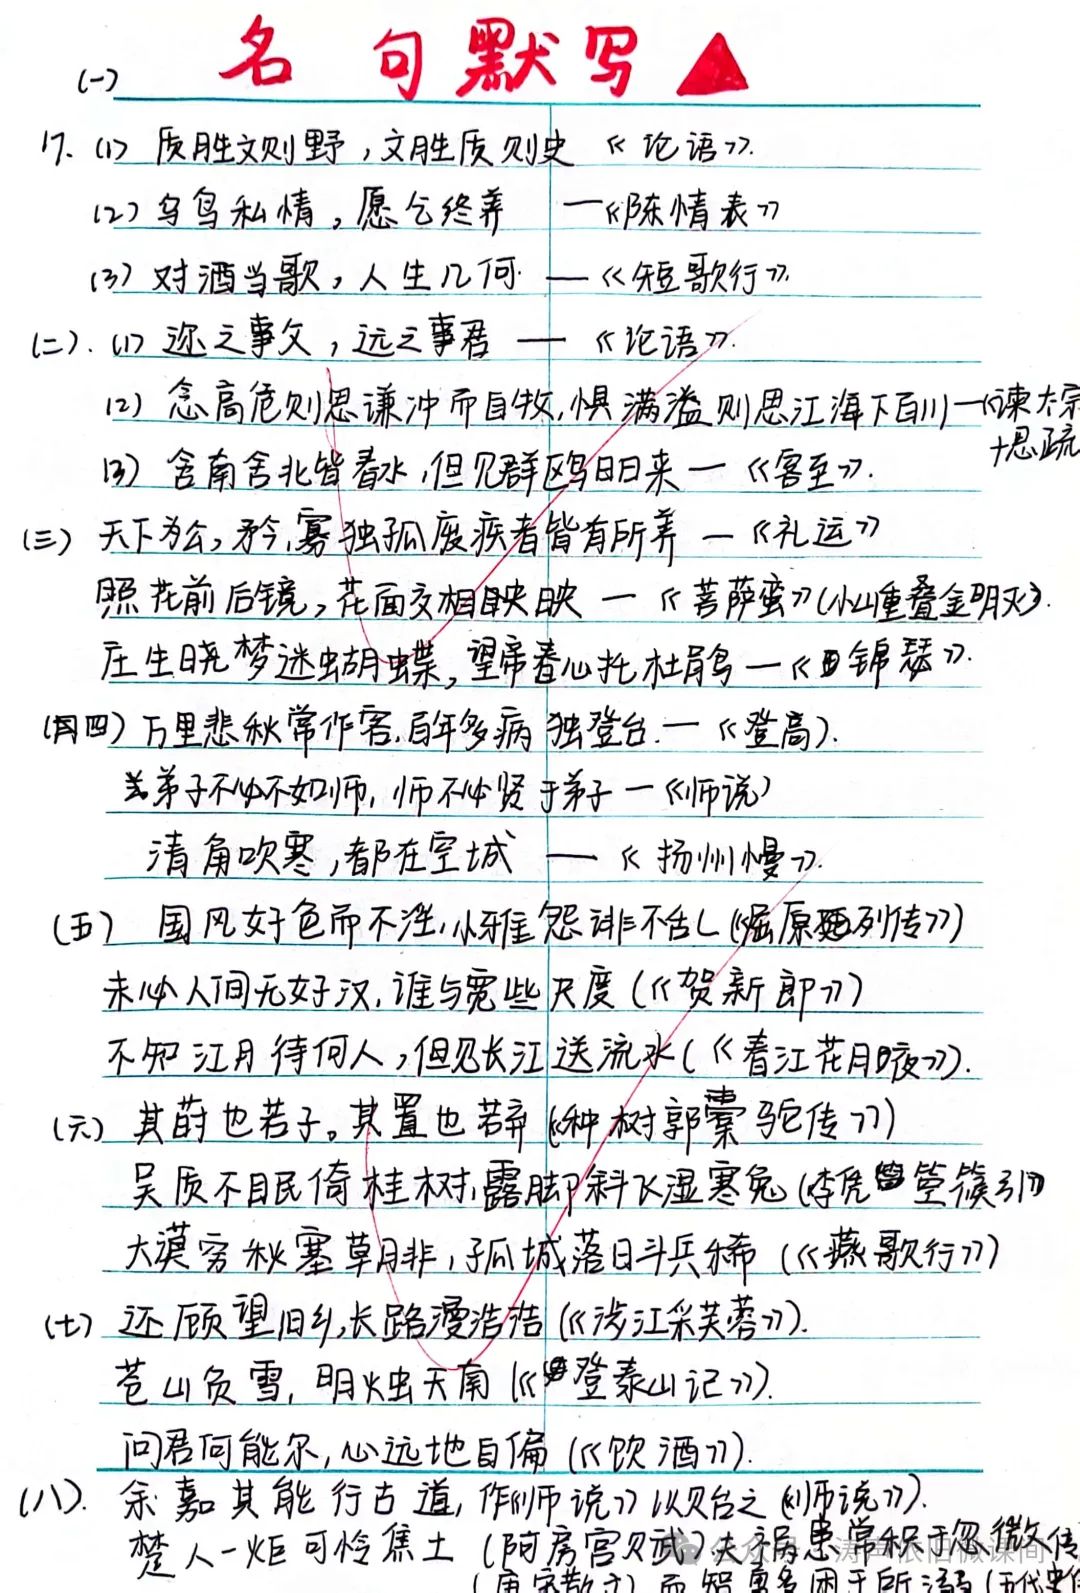 名句默写
(一)
17. (1) 质胜文则野，文胜质则史 《论语》.
(2) 乌鸟私情，愿乞终养 —《陈情表》
(3) 对酒当歌，人生几何 — 《短歌行》.
(二). (1) 迩之事父，远之事君 — 《论语》.
(2) 念高危则思谦冲而自牧,惧满溢则思江海下百川—《谏太宗
十思疏
(3) 舍南舍北皆春水,但见群鸥日日来 — 《客至》.
(三) 天下为公,矜,寡独孤废疾者皆有所养 — 《礼运》
照花前后镜,花面交相映 — 《菩萨蛮》(小山重叠金明灭).
庄生晓梦迷蝴蝶,望帝春心托杜鹃 — 《锦瑟》.
(四) 万里悲秋常作客,百年多病独登台. — 《登高).
弟子不必不如师,师不必贤于弟子 — 《师说》
清角吹寒,都在空城 — 《扬州慢》.
(五) 国风好色而不淫,小雅怨诽不乱 (《屈原列传》)
未必人间无好汉,谁与宽些尺度 (《贺新郎》)
不知江月待何人,但见长江送流水 (《春江花月夜》).
(六) 其莳也若子。其置也若弃 (《种树郭橐驼传》)
吴质不眠倚桂树,露脚斜飞湿寒兔 (李凭箜篌引》)
大漠穷秋塞草腓,孤城落日斗兵稀 (《燕歌行》)
(七) 还顾望旧乡,长路漫浩浩 (《涉江采芙蓉》).
苍山负雪,明烛天南 (《登泰山记》).
问君何能尔,心远地自偏 (《饮酒》).
(八). 余嘉其能行古道,作《师说》以贻之 (《师说》).
楚人一炬可怜焦土 (阿房宫赋》夫祸患常积于忽微
而智勇多困于所溺